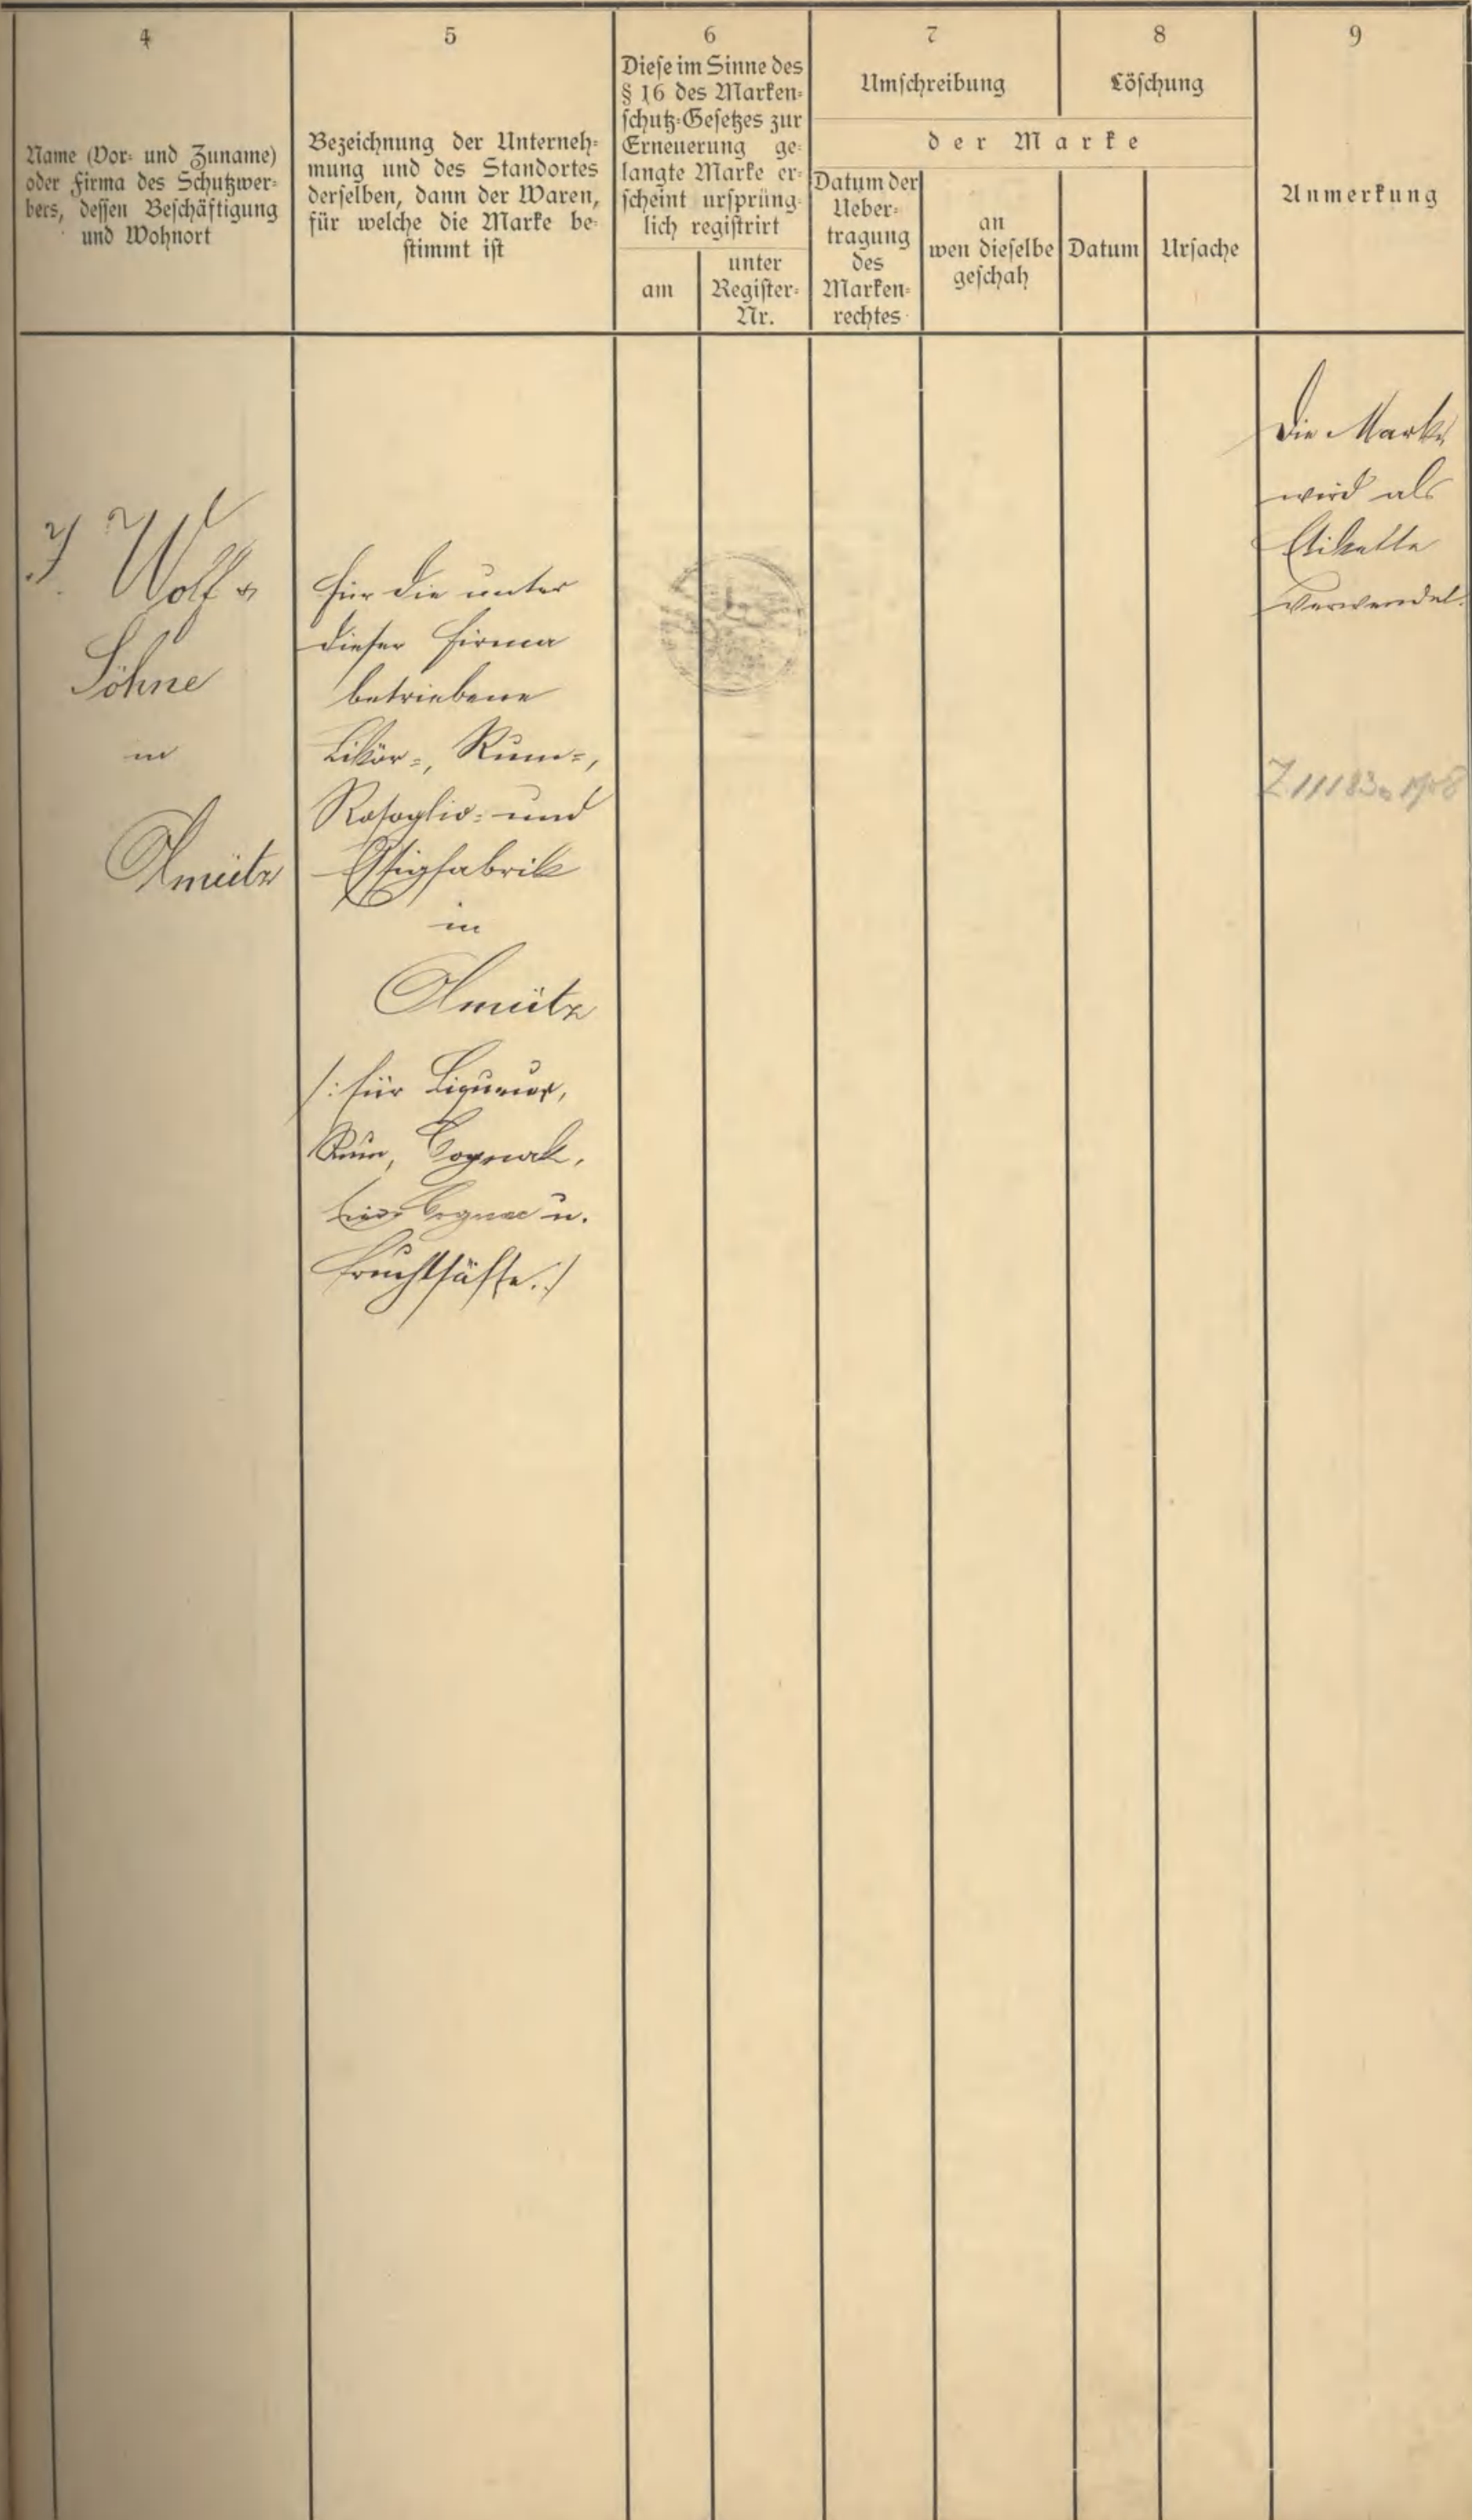 4
Name (Vor- und Zuname)
oder Firma des Schutzwer-
bers, dessen Beschäftigung
und Wohnort
5
Bezeichnung der Unterneh-
mung und des Standortes
derselben, dann der Waren,
für welche die Marke be-
stimmt ist
6
Diese im Sinne des
§ 16 des Marken-
schutz-Gesetzes zur
Erneuerung ge-
langte Marke er-
scheint ursprüng-
lich registrirt
am
unter
Register-
Nr.
7
Umschreibung
8
Löschung
der Marke
Datum der
Ueber-
tragung
des
Marken-
rechtes
an
wen dieselbe
geschah
Datum
Ursache
9
Anmerkung
J. Wolf &
Söhne
in
Olmütz
für die unter
dieser Firma
betriebene
Likör-, Rum-,
Rosoglio- und
Essigfabrik
in
Olmütz
/: für Liqueur,
Rum, Cognak,
Cognac u.
Fruchtsäfte. /
Die Marke
wird als
Etikette
verwendet.
Z 11183 1908